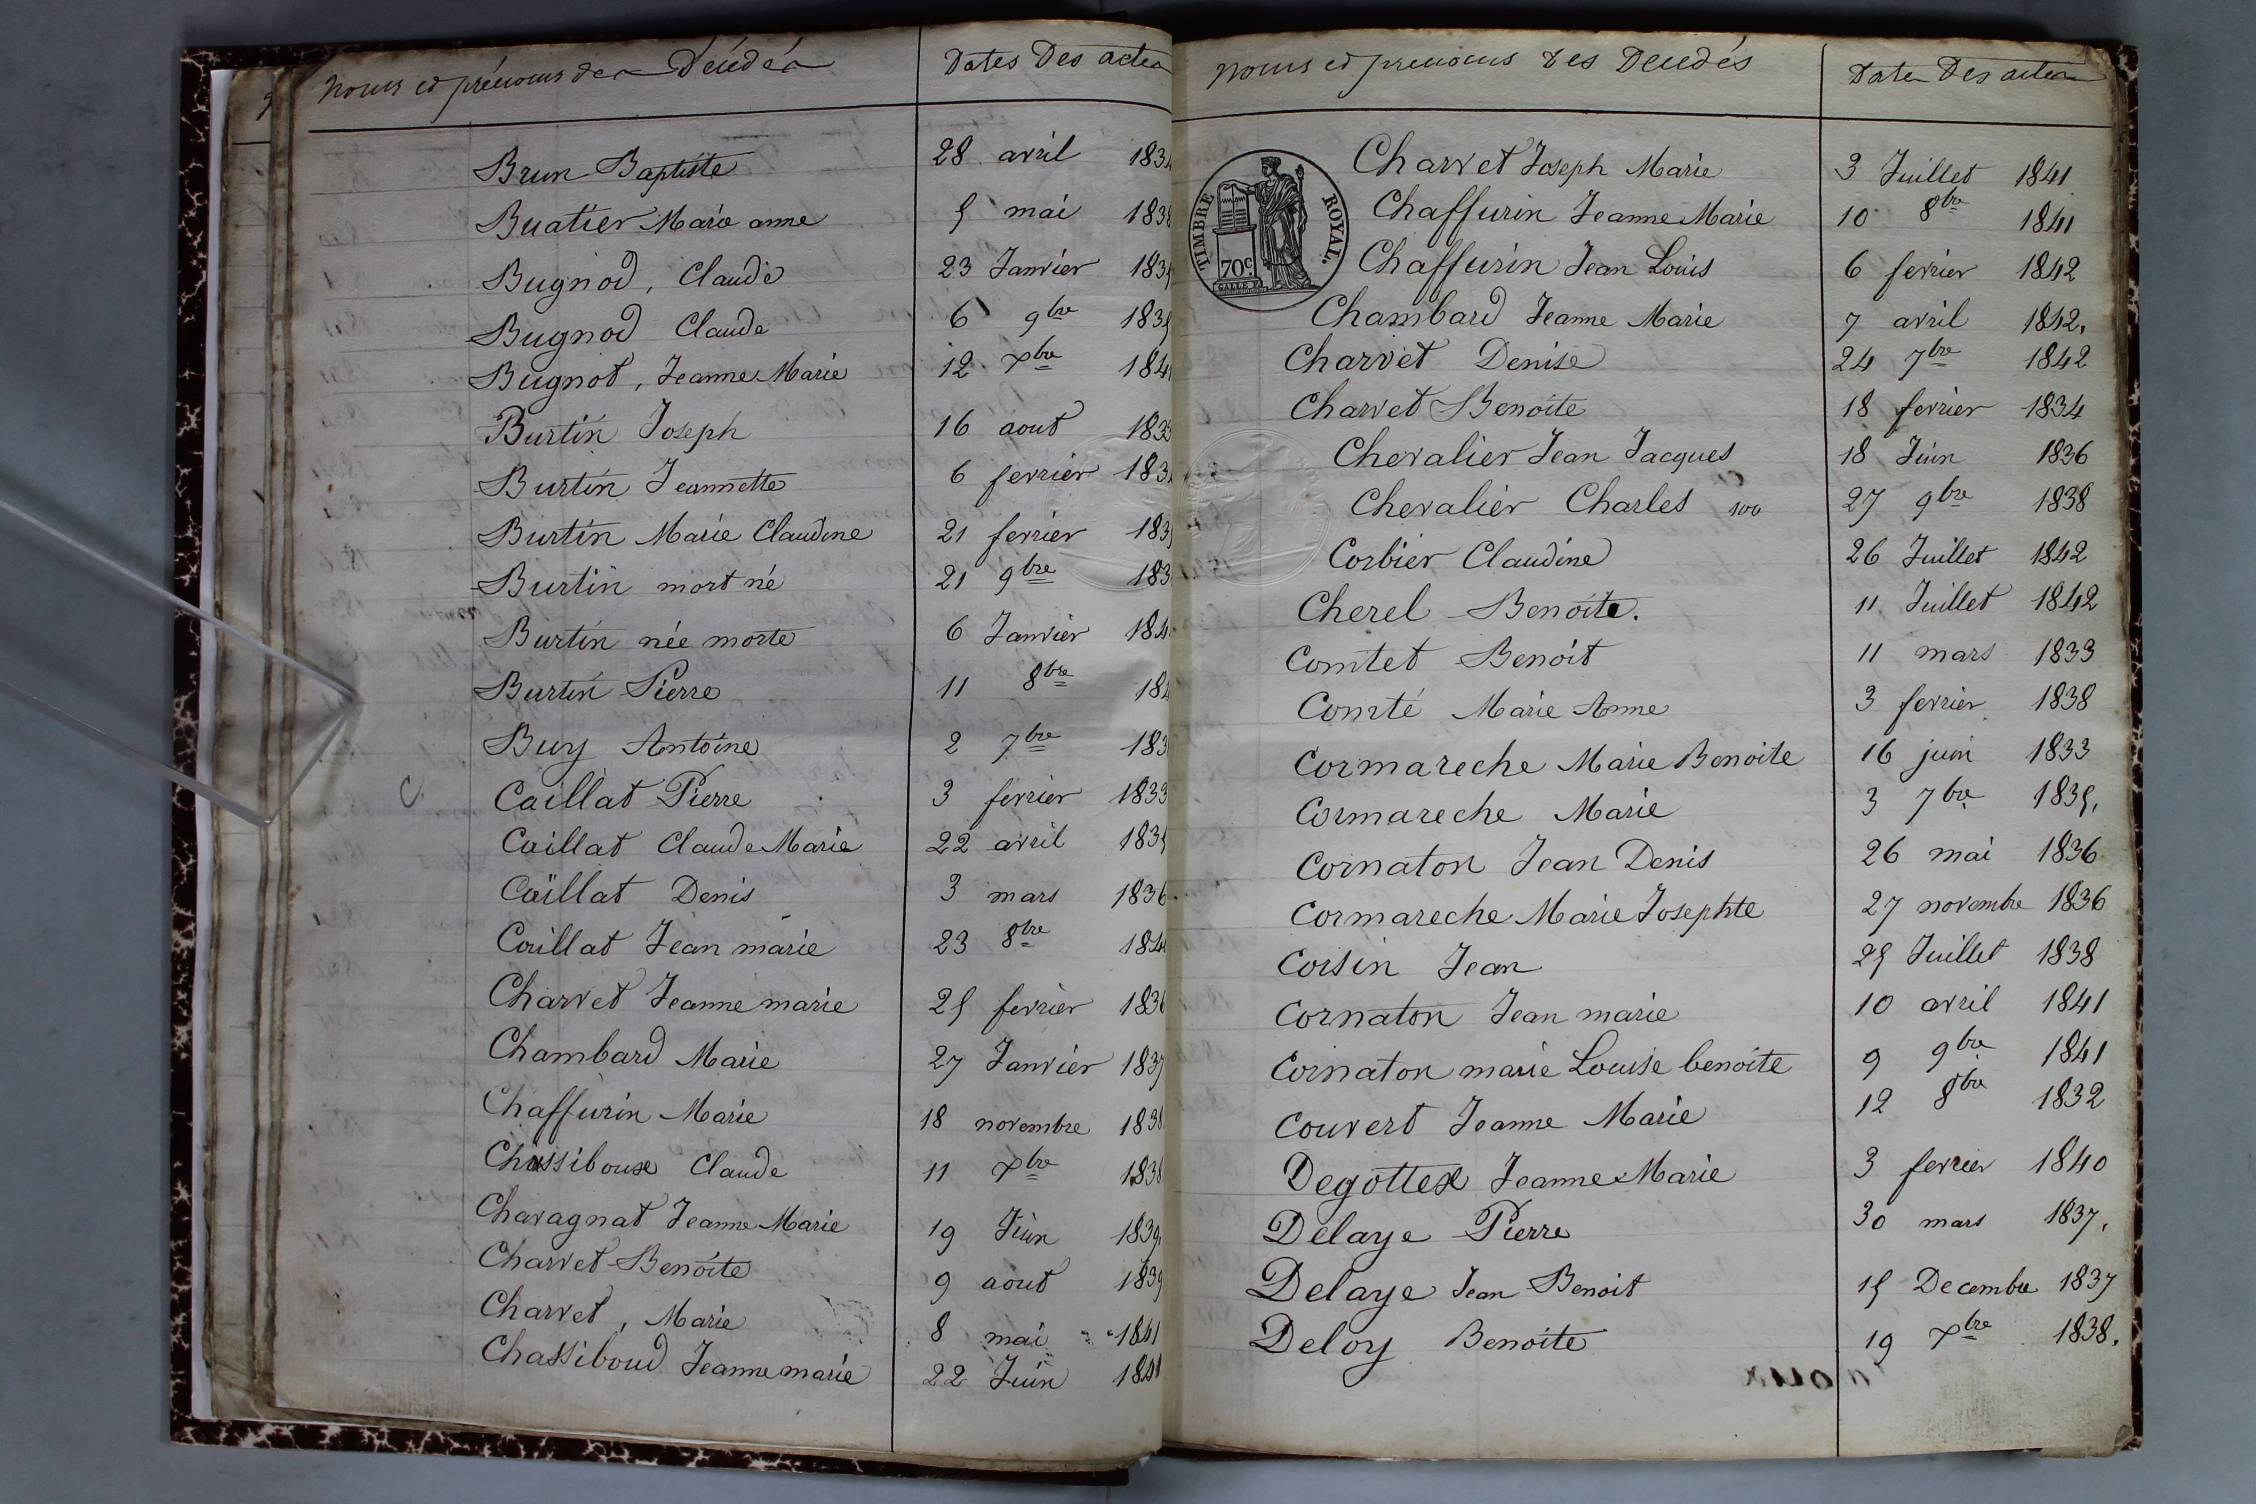 Noms et prénoms des Décédés Dates Des actes
Brun Baptiste 28 avril
Buatier Marie anne 5 mai 1838
Bugnod, Claude 23 Janvier
Bugnod Claude 6 9bre
Bugnot, Jeanne Marie 12 Xbre
Burtin Joseph 16 aout 1833
Burtin Jeannette 6 fevrier
Burtin Marie Claudine 21 fevrier
Burtin mort né 21 9bre
Burtin née morte 6 Janvier
Burtin Pierre 11 8bre
Buy Antoine 2 7bre
C
Caillat Pierre 3 fevrier 1833
Caillat Claude Marie 22 avril 1835
Caillat Denis 3 mars 1836
Caillat Jean marie 23 8bre
Charvet Jeanne marie 25 fevrier 1836
Chambard Marie 27 Janvier 1837
Chaffurin Marie 18 novembre 1838
Chassiboux Claude 11 Xbre 1838
Chavagnat Jeanne Marie 19 Juin 1839
Charvet Benoite 9 aout 1839
Charvet, Marie 8 mai 1841
Chassiboud Jeanne marie 22 Juin 1841
Noms et prenoms des Décédés Date Des actes
TIMBRE ROYAL.
70c
Charvet Joseph Marie 3 Juillet 1841
Chaffurin Jeanne Marie 10 8bre 1841
Chaffurin Jean Louis 6 fevrier 1842
Chambard Jeanne Marie 7 avril 1842.
Charvet Denise 24 7bre 1842
Charvet Benoite 18 fevrier 1834
Chevalier Jean Jacques 18 Juin 1836
Chevalier Charles 100 27 9bre 1838
Corbier Claudine 26 Juillet 1842
Cherel Benoite. 11 Juillet 1842
Comtet Benoit 11 mars 1833
Comté Marie Anne 3 fevrier 1838
Cormareche Marie Benoite 16 juin 1833
Cormareche Marie 3 7bre 1835.
Cornaton Jean Denis 26 mai 1836
Cormareche Marie Josephte 27 novembre 1836
Corsin Jean 25 Juillet 1838
Cornaton Jean marie 10 avril 1841
Cornaton marie Louise benoite 9 9bre 1841
Couvert Jeanne Marie 12 8bre 1832
Degottex Jeanne Marie 3 fevrier 1840
Delaye Pierre 30 mars 1837.
Delaye Jean Benoit 15 Decembre 1837
Deloy Benoite 19 Xbre 1838.